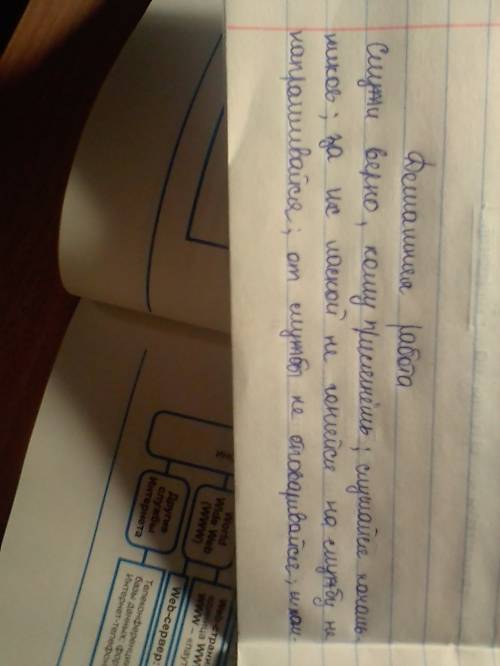 Домашняя работа
Служи верно, кому присягнёшь; слушайся началь-
ников; за их лаской не гоняйся на службу не
напрашивайся; от службы не отговаривайся; и пом-
й
World
Wide Web
(WWW)
Другие
службы
Интернета
Web-сервер:
Телеконференции
базы данных, фор
Интернет-телефон